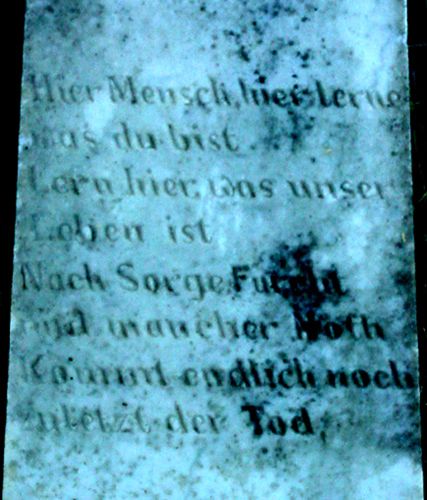 Hier Mensch, hier Lerne
was du bist.
Lern hier, was unser
Leben ist
Nach Sorge, Furcht
und mancher Noth
Kommt endlich noch
zuletzt der Tod,